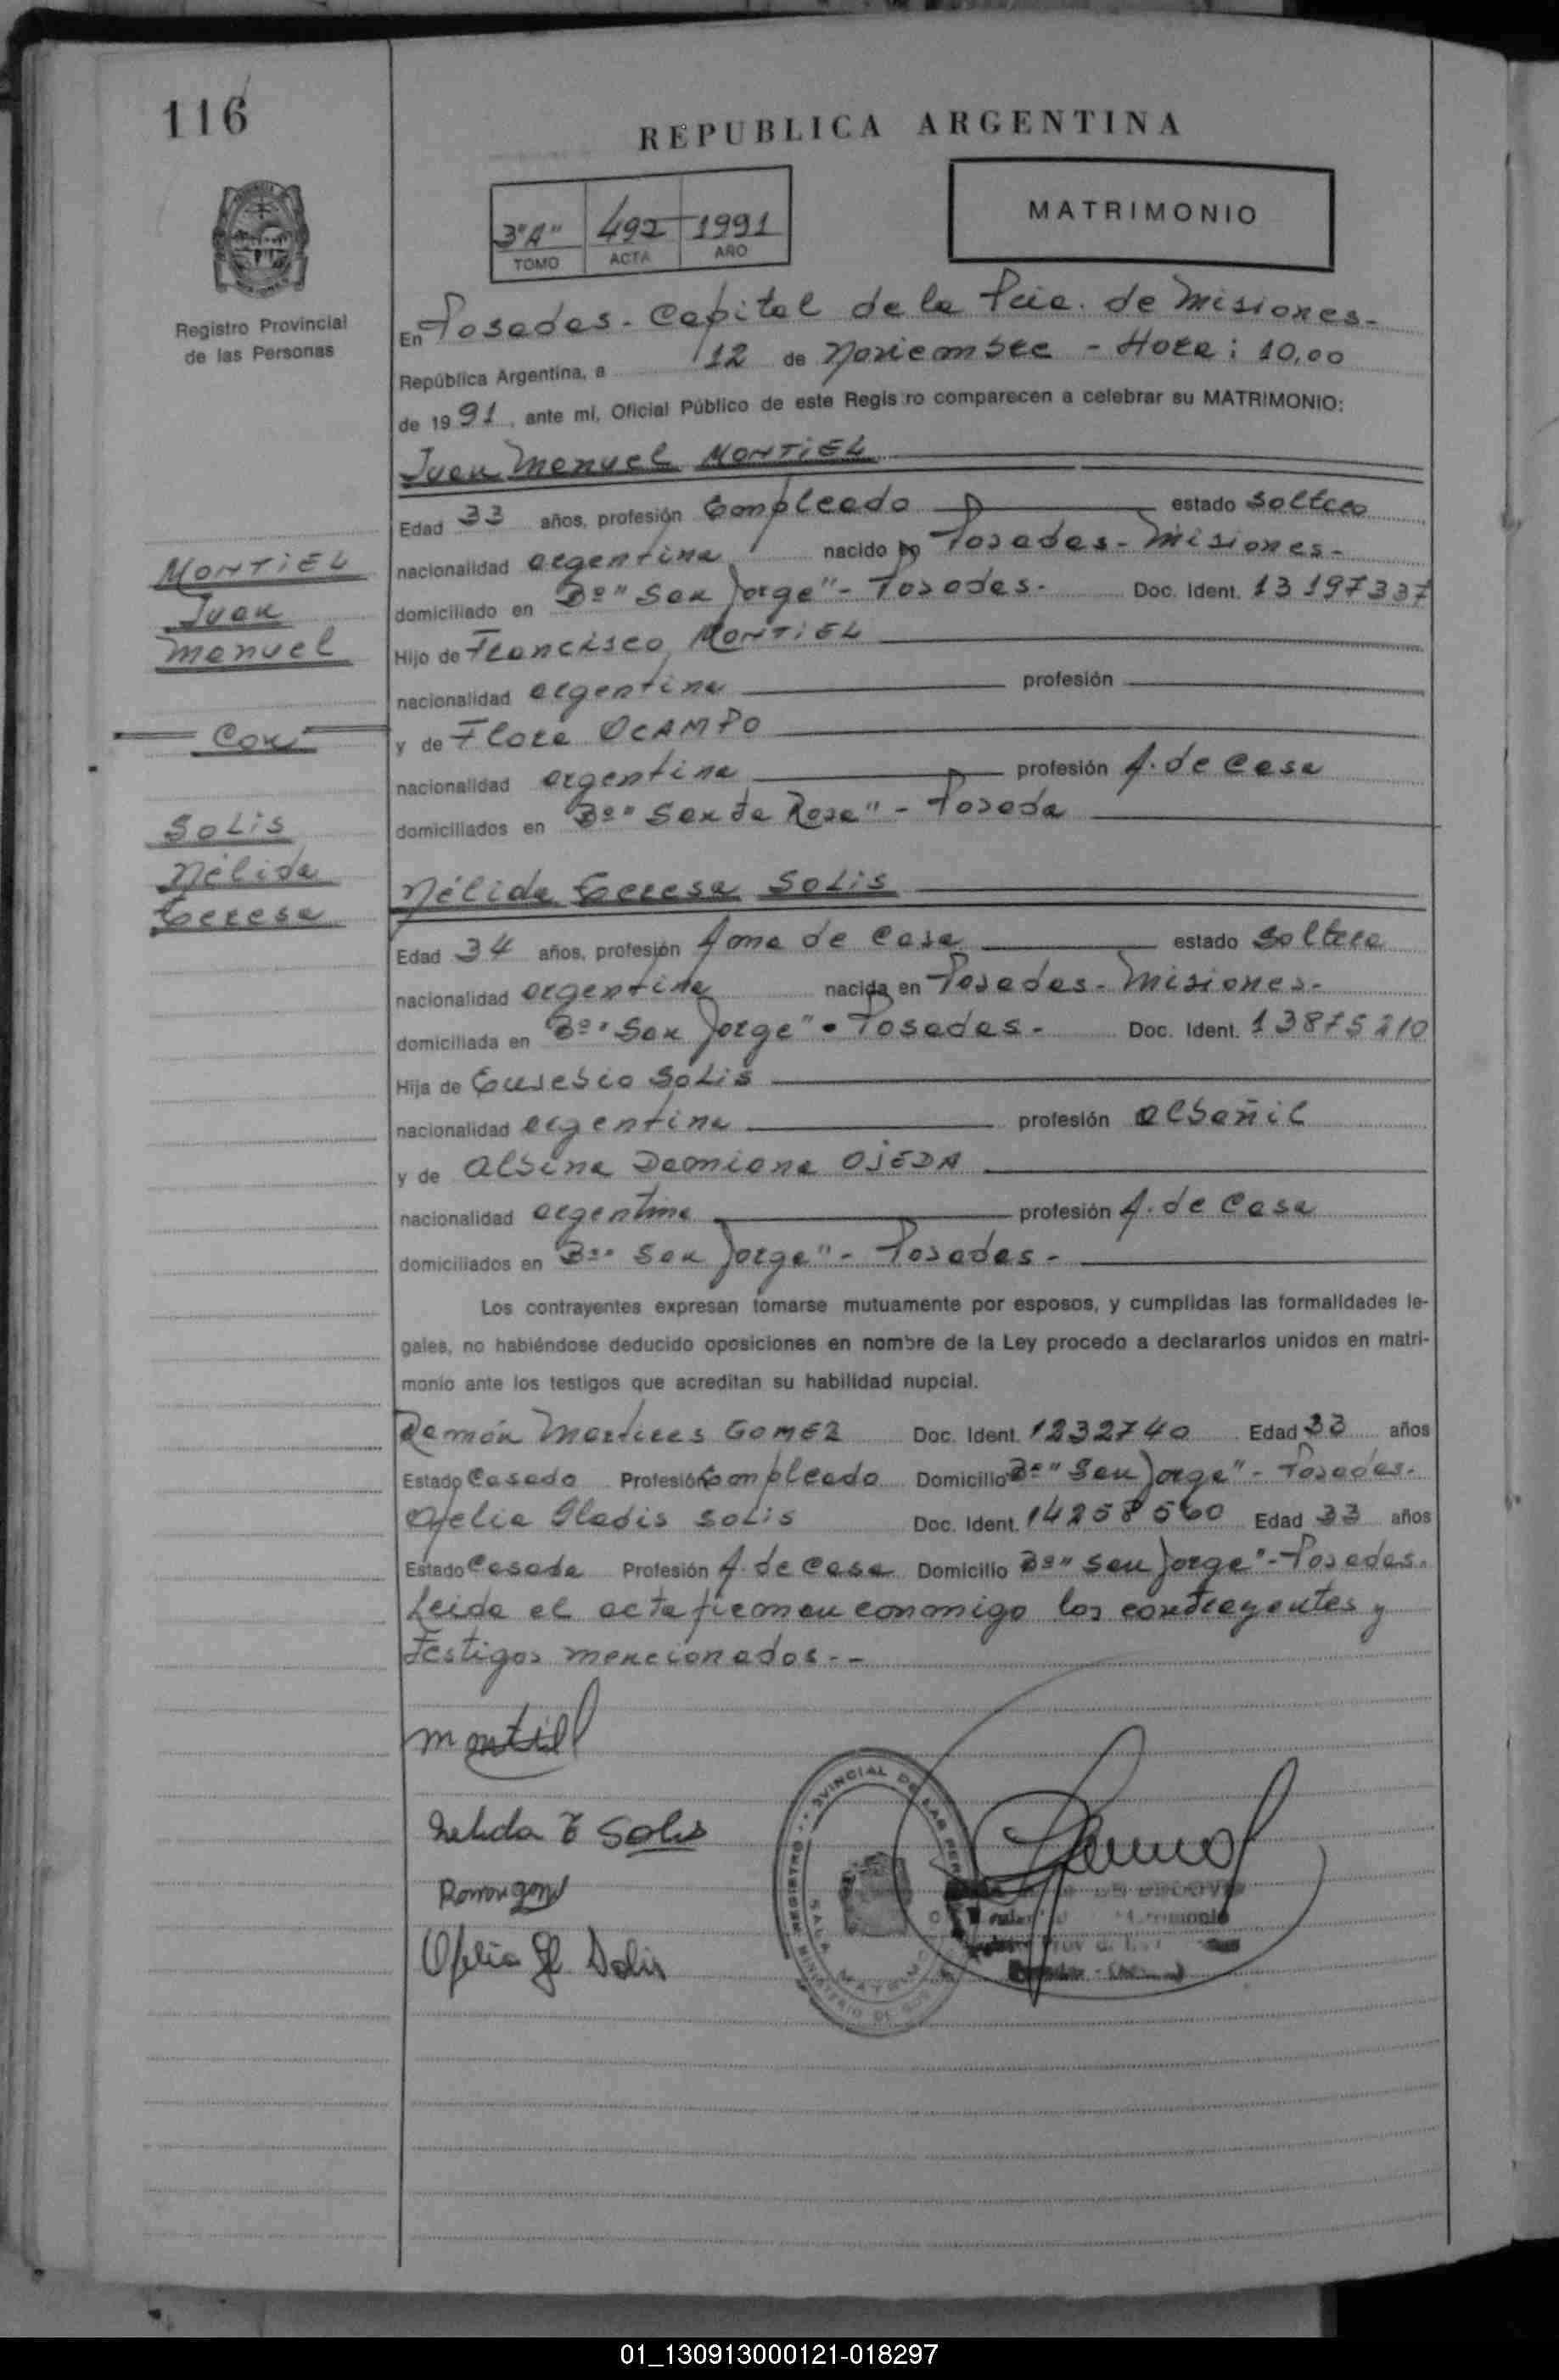 116
REPUBLICA ARGENTINA
3º"A" 492 1991
TOMO ACTA AÑO
MATRIMONIO
Registro Provincial
de las Personas
En Posadas - Capital de la Pcia. de Misiones -
República Argentina, a 12 de Noviembre - Hora: 10,00
de 1991, ante mí, Oficial Público de este Registro comparecen a celebrar su MATRIMONIO:
Juan Manuel MONTIEL
Edad 33 años, profesión Empleado estado soltero
nacionalidad argentina nacido en Posadas - Misiones -
domiciliado en Bº "San Jorge" - Posadas - Doc. Ident. 13197337
Hijo de Francisco MONTIEL
nacionalidad argentina profesión
y de Flora OCAMPO
nacionalidad argentina profesión A. de Casa
domiciliados en Bº "Santa Rosa" - Posada
MONTIEL
Juan
Manuel
Con
SOLIS
Nélida
Teresa
Nélida Teresa SOLIS
Edad 34 años, profesión Ama de Casa estado soltera
nacionalidad argentina nacida en Posadas - Misiones -
domiciliada en Bº "San Jorge" - Posadas - Doc. Ident. 13875210
Hija de Eusebio SOLIS
nacionalidad argentina profesión albañil
y de Albina Damiana OJEDA
nacionalidad argentina profesión A. de Casa
domiciliados en Bº "San Jorge" - Posadas -
Los contrayentes expresan tomarse mutuamente por esposos, y cumplidas las formalidades le-
gales, no habiéndose deducido oposiciones en nombre de la Ley procedo a declararlos unidos en matri-
monio ante los testigos que acreditan su habilidad nupcial.
Ramón Martires GOMEZ Doc. Ident. 1232740 Edad 33 años
Estado Casado Profesión Empleado Domicilio Bº "San Jorge" - Posadas -
Ofelia Gladis SOLIS Doc. Ident. 14258560 Edad 33 años
Estado Casada Profesión A. de Casa Domicilio Bº "San Jorge" - Posadas.
Leida el acta firman conmigo los contrayentes y
Testigos mencionados - -
Montiel
Nelida T Solis
Ofelia Gl Solis
01_130913000121-018297